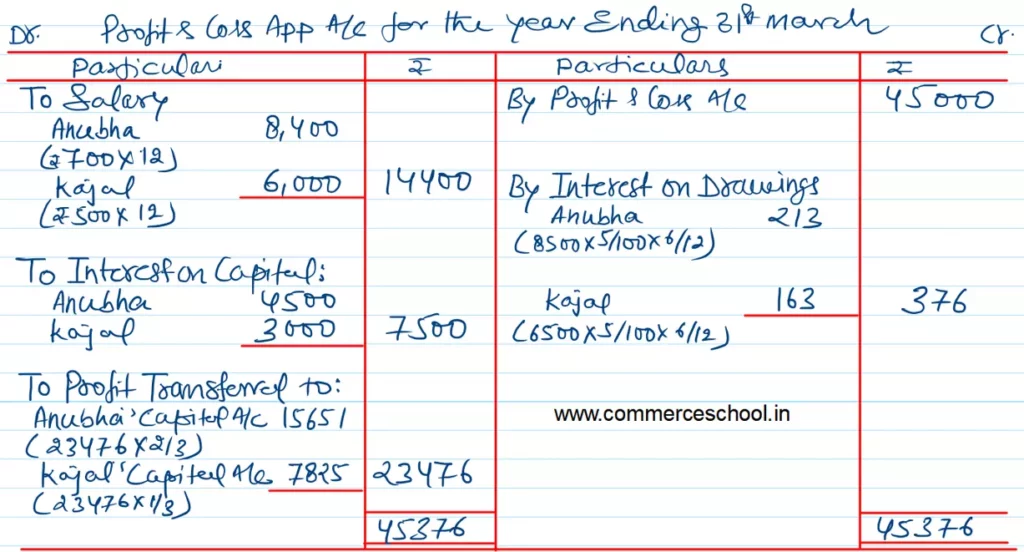 Profit & Loss App A/c for the year Ending 31st March
Dr.
Cr.
Particulars
₹
Particulars
₹
To Salary
Anubha 8,400
(₹700 x 12)
Kajal 6,000 14400
(₹500 x 12)
To Interest on Capital:
Anubha 4500
Kajal 3000 7500
To Profit Transferred to:
Anubha's Capital A/c 15651
(23476 x 2/3)
Kajal's Capital A/c 7825 23476
(23476 x 1/3)
45376
By Profit & Loss A/c 45000
By Interest on Drawings
Anubha 213
(8500 x 5/100 x 6/12)
Kajal 163 376
(6500 x 5/100 x 6/12)
www.commerceschool.in
45376